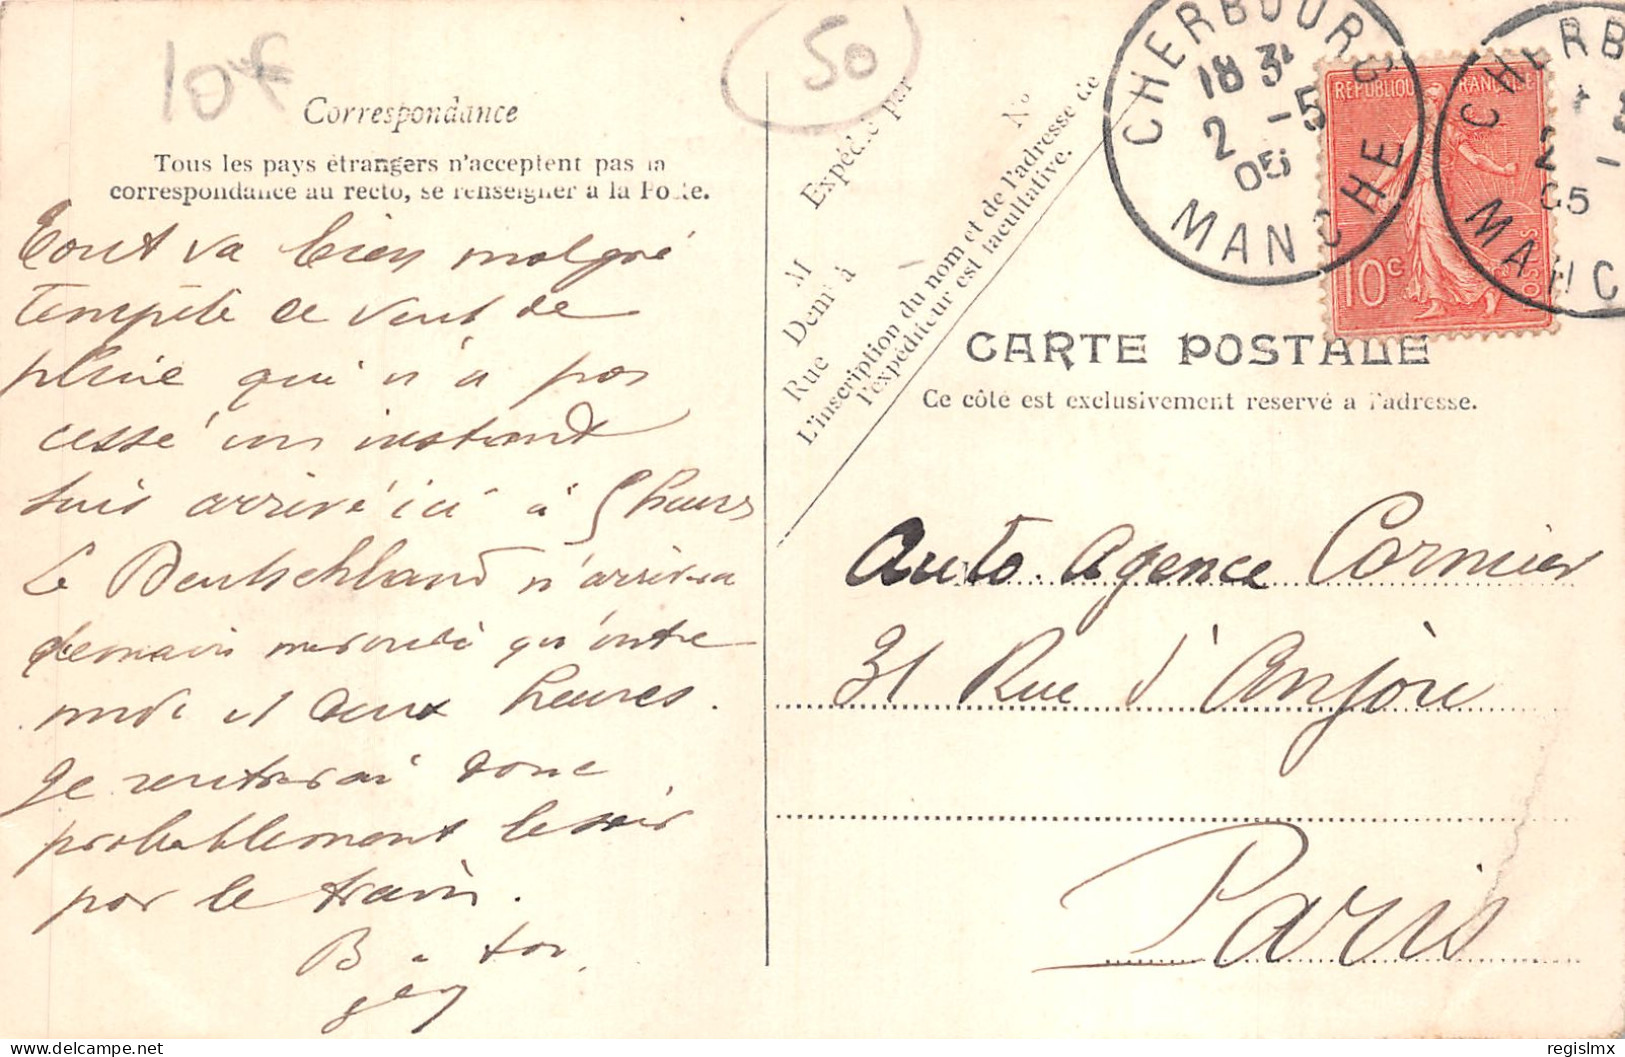 10f
50
Correspondance
Tous les pays étrangers n'acceptent pas la
correspondance au recto, se renseigner à la Poste.
Tout va bien malgré
tempête et vent de
pluie qui n'a pas
cessé un instant
suis arrivé ici à 5 heures
Le Deutschland n'arrivera
demain mercredi qu'entre
midi et deux heures.
Je rentrerai donc
probablement le soir
par le train.
B à toi
Expédié par
M
Demt à
Rue
No
L'inscription du nom et de l'adresse de
l'expéditeur est facultative.
CHERBOURG
18 3
2 -5
05
MANCHE
REPUBLIQUE FRANÇAISE
10c
POSTES
CHERB
2 -
05
MANC
CARTE POSTALE
Ce côté est exclusivement réservé à l'adresse.
Auto. Agence Cormier
31 Rue d'Anjou
Paris
www.delcampe.net
regislmx